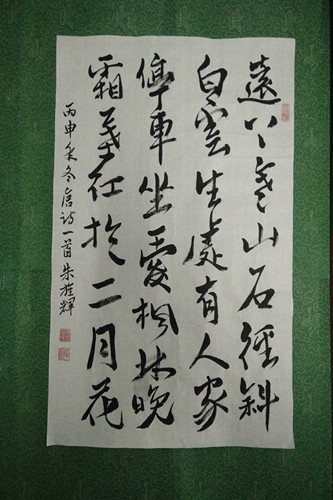 遠上寒山石徑斜
白雲生處有人家
停車坐愛楓林晚
霜葉紅於二月花
丙申冬唐詩一首 朱輝